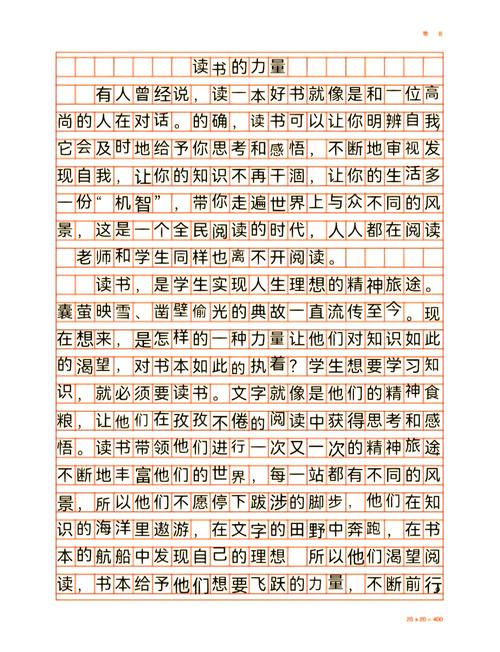 读书的力量
有人曾经说，读一本好书就像是和一位高
尚的人在对话。的确，读书可以让你明辨自我
它会及时地给予你思考和感悟，不断地审视发
现自我，让你的知识不再干涸，让你的生活多
一份“机智”，带你走遍世界上与众不同的风
景，这是一个全民阅读的时代，人人都在阅读
老师和学生同样也离不开阅读。
读书，是学生实现人生理想的精神旅途。
囊萤映雪、凿壁偷光的典故一直流传至今。现
在想来，是怎样的一种力量让他们对知识如此
的渴望，对书本如此的执着？学生想要学习知
识，就必须要读书。文字就像是他们的精神食
粮，让他们在孜孜不倦的阅读中获得思考和感
悟。读书带领他们进行一次又一次的精神旅途
不断地丰富他们的世界，每一站都有不同的风
景，所以他们不愿停下跋涉的脚步，他们在知
识的海洋里遨游，在文字的田野中奔跑，在书
本的航船中发现自己的理想 所以他们渴望阅
读，书本给予他们想要飞跃的力量，不断前行
20 x 20 = 400